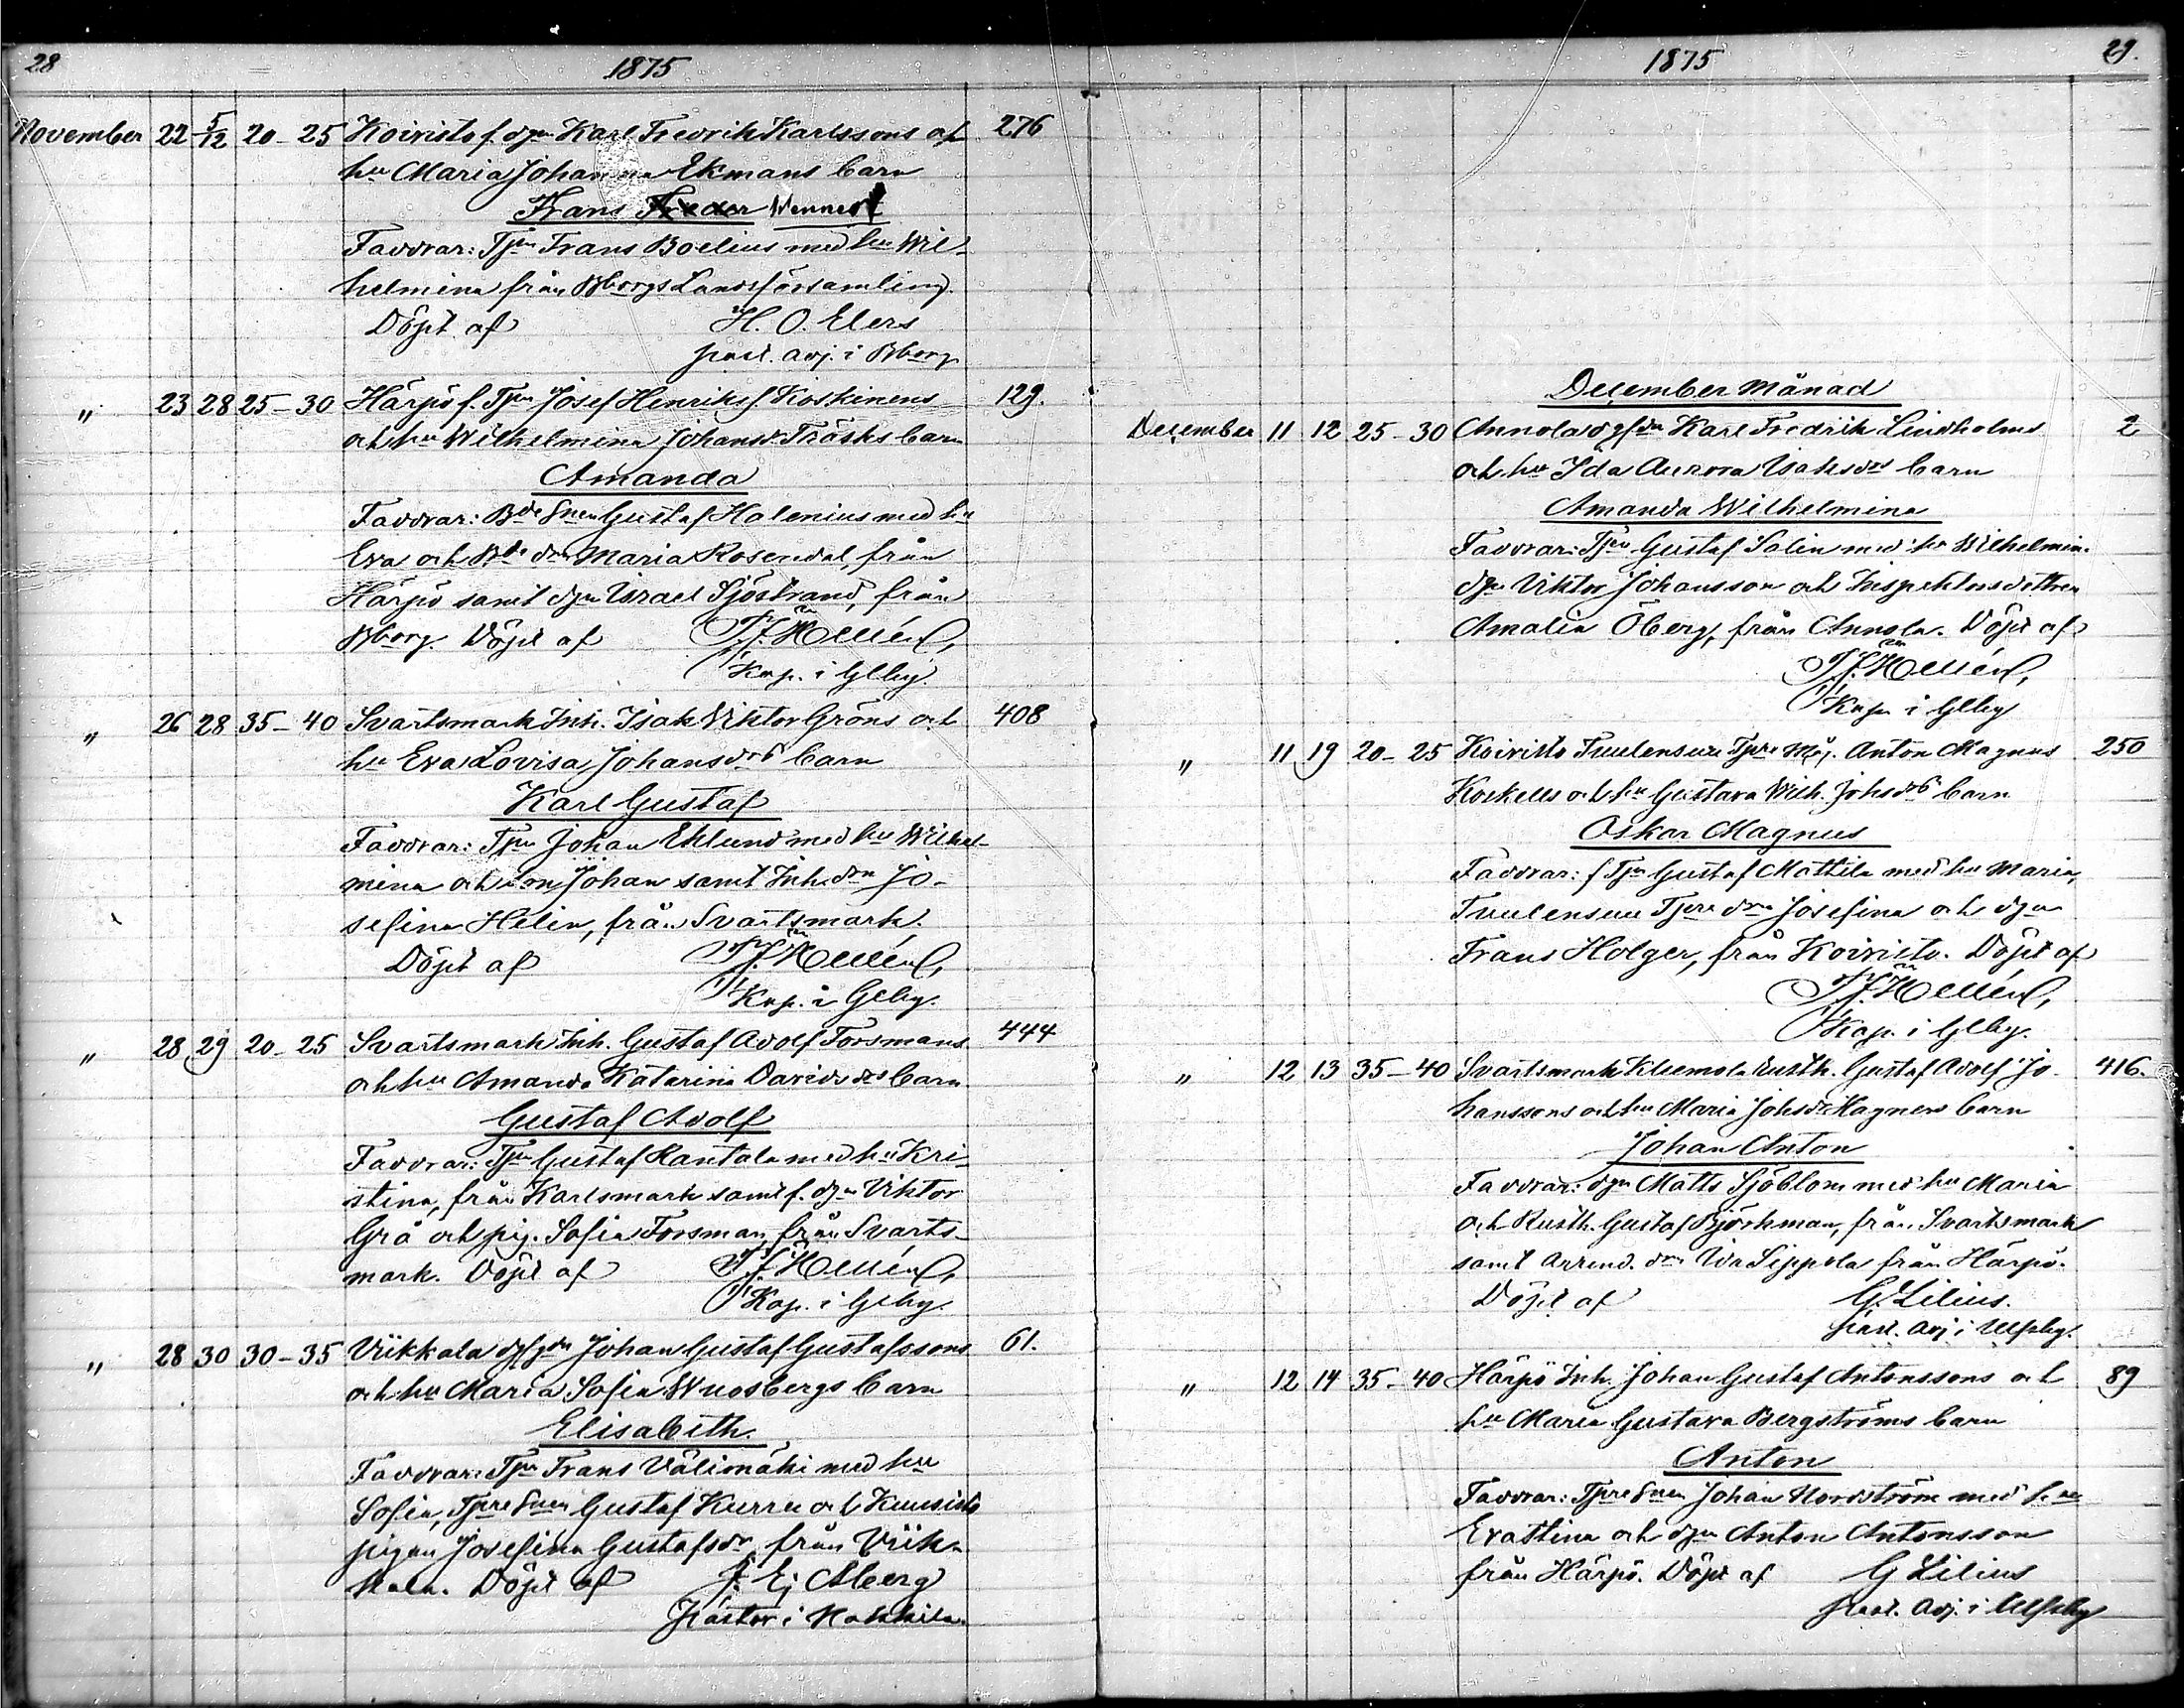 28
1875
November 22 5/12 20-25 Koivisto f. dgn Karl Fredrik Karlssons och 276
hu Maria Johanna Ekmans barn
Frans Wennert
Faddrar: Tjn Frans Boelius med hu Wil-
helmina från Bborgs Landsförsamling.
Döpt af H. O. Elers
past. adj. i Bborg
" 23 28 25-30 Härpö f. Tjn Josef Henriks f. Koskinens 129.
och hu Wilhelmina Johansdr Träsks barn
Amanda
Faddrar: Bde Snen Gustaf Halenius med hu
Eva och Bde drn Maria Rosendal, från
Härpö samt dgn Israel Sjöstrand, från
Bborg. Döpt af
Kap. i Glby.
" 26 28 35-40 Svartsmark Inh. Isak Viktor Gröns och 408
hu Eva Lovisa Johansdrs barn
Karl Gustaf
Faddrar: Tjn Johan Eklund med hu Wilhel-
mina och son Johan samt Inh. drn Jo-
sefina Helin, från Svartsmark.
Döpt af
Kap. i Glby.
" 28 29 20-25 Svartsmark Inh. Gustaf Adolf Forsmans 444
och hu Amanda Katarina Davidsdrs barn
Gustaf Adolf
Faddrar: Tjn Gustaf Rantala med hu Kri-
stina, från Karlsmark samt f. dgn Viktor
Grå och pig. Sofia Forsman, från Svarts-
mark. Döpt af
Kap. i Glby.
" 28 30 30-35 Viikkala Johan Gustaf Gustafssons 61.
och hu Maria Sofia Wuosbergs barn
Elisabeth.
Faddrar: Tjn Frans Välimäki med hu
Sofia, Tjpre Snen Gustaf Kurru och Kuusisto
pigan Josefina Gustafsdr, från Viik-
kala. Döpt af J. Ej Aberg
Pastor i Nakkila.
1875
29.
December Månad
December 11 12 25-30 Annola Karl Fredrik Lindholms 2
och hu Ida Aurora Isaksdrs barn
Amanda Wilhelmina
Faddrar: Tjn Gustaf Salin med hu Wilhelmin.
dgn Viktor Johansson och Inspektorsdottren
Amalia Öberg, från Annola. Döpt af
Kapn i Glby
" 11 19 20-25 Koivisto Tuulensuu Tjpre Måg. Anton Magnus 250
Koskells och hu Gustava Wilh. Johsdrs barn
Oskar Magnus
Faddrar: f Tjn Gustaf Mattila med hu Maria,
Tuulensuu Tjpre drn Josefina och dgn
Frans Holger, från Koivisto. Döpt af
Kap. i Glby.
" 12 13 35-40 Svartsmark Kleemola Rusth. Gustaf Adolf Jo- 416.
hanssons och hu Maria Johsdr Hagners barn
Johan Anton
Faddrar: dgn Matts Sjöblom med hu Maria
och Rusth. Gustaf Björkman, från Svartsmark
samt arrend. drn Ida Sippola från Härpö.
Döpt af G. Lilius.
past. adj i Ulfsby.
" 12 14 35-40 Härpö Inh. Johan Gustaf Antonssons och 89
hu Maria Gustava Bergströms barn
Anton
Faddrar: Tjpre Snen Johan Nordström med hu
Evastina och dgn Anton Antonsson
från Härpö. Döpt af G Lilius
past. adj. i Ulfsby